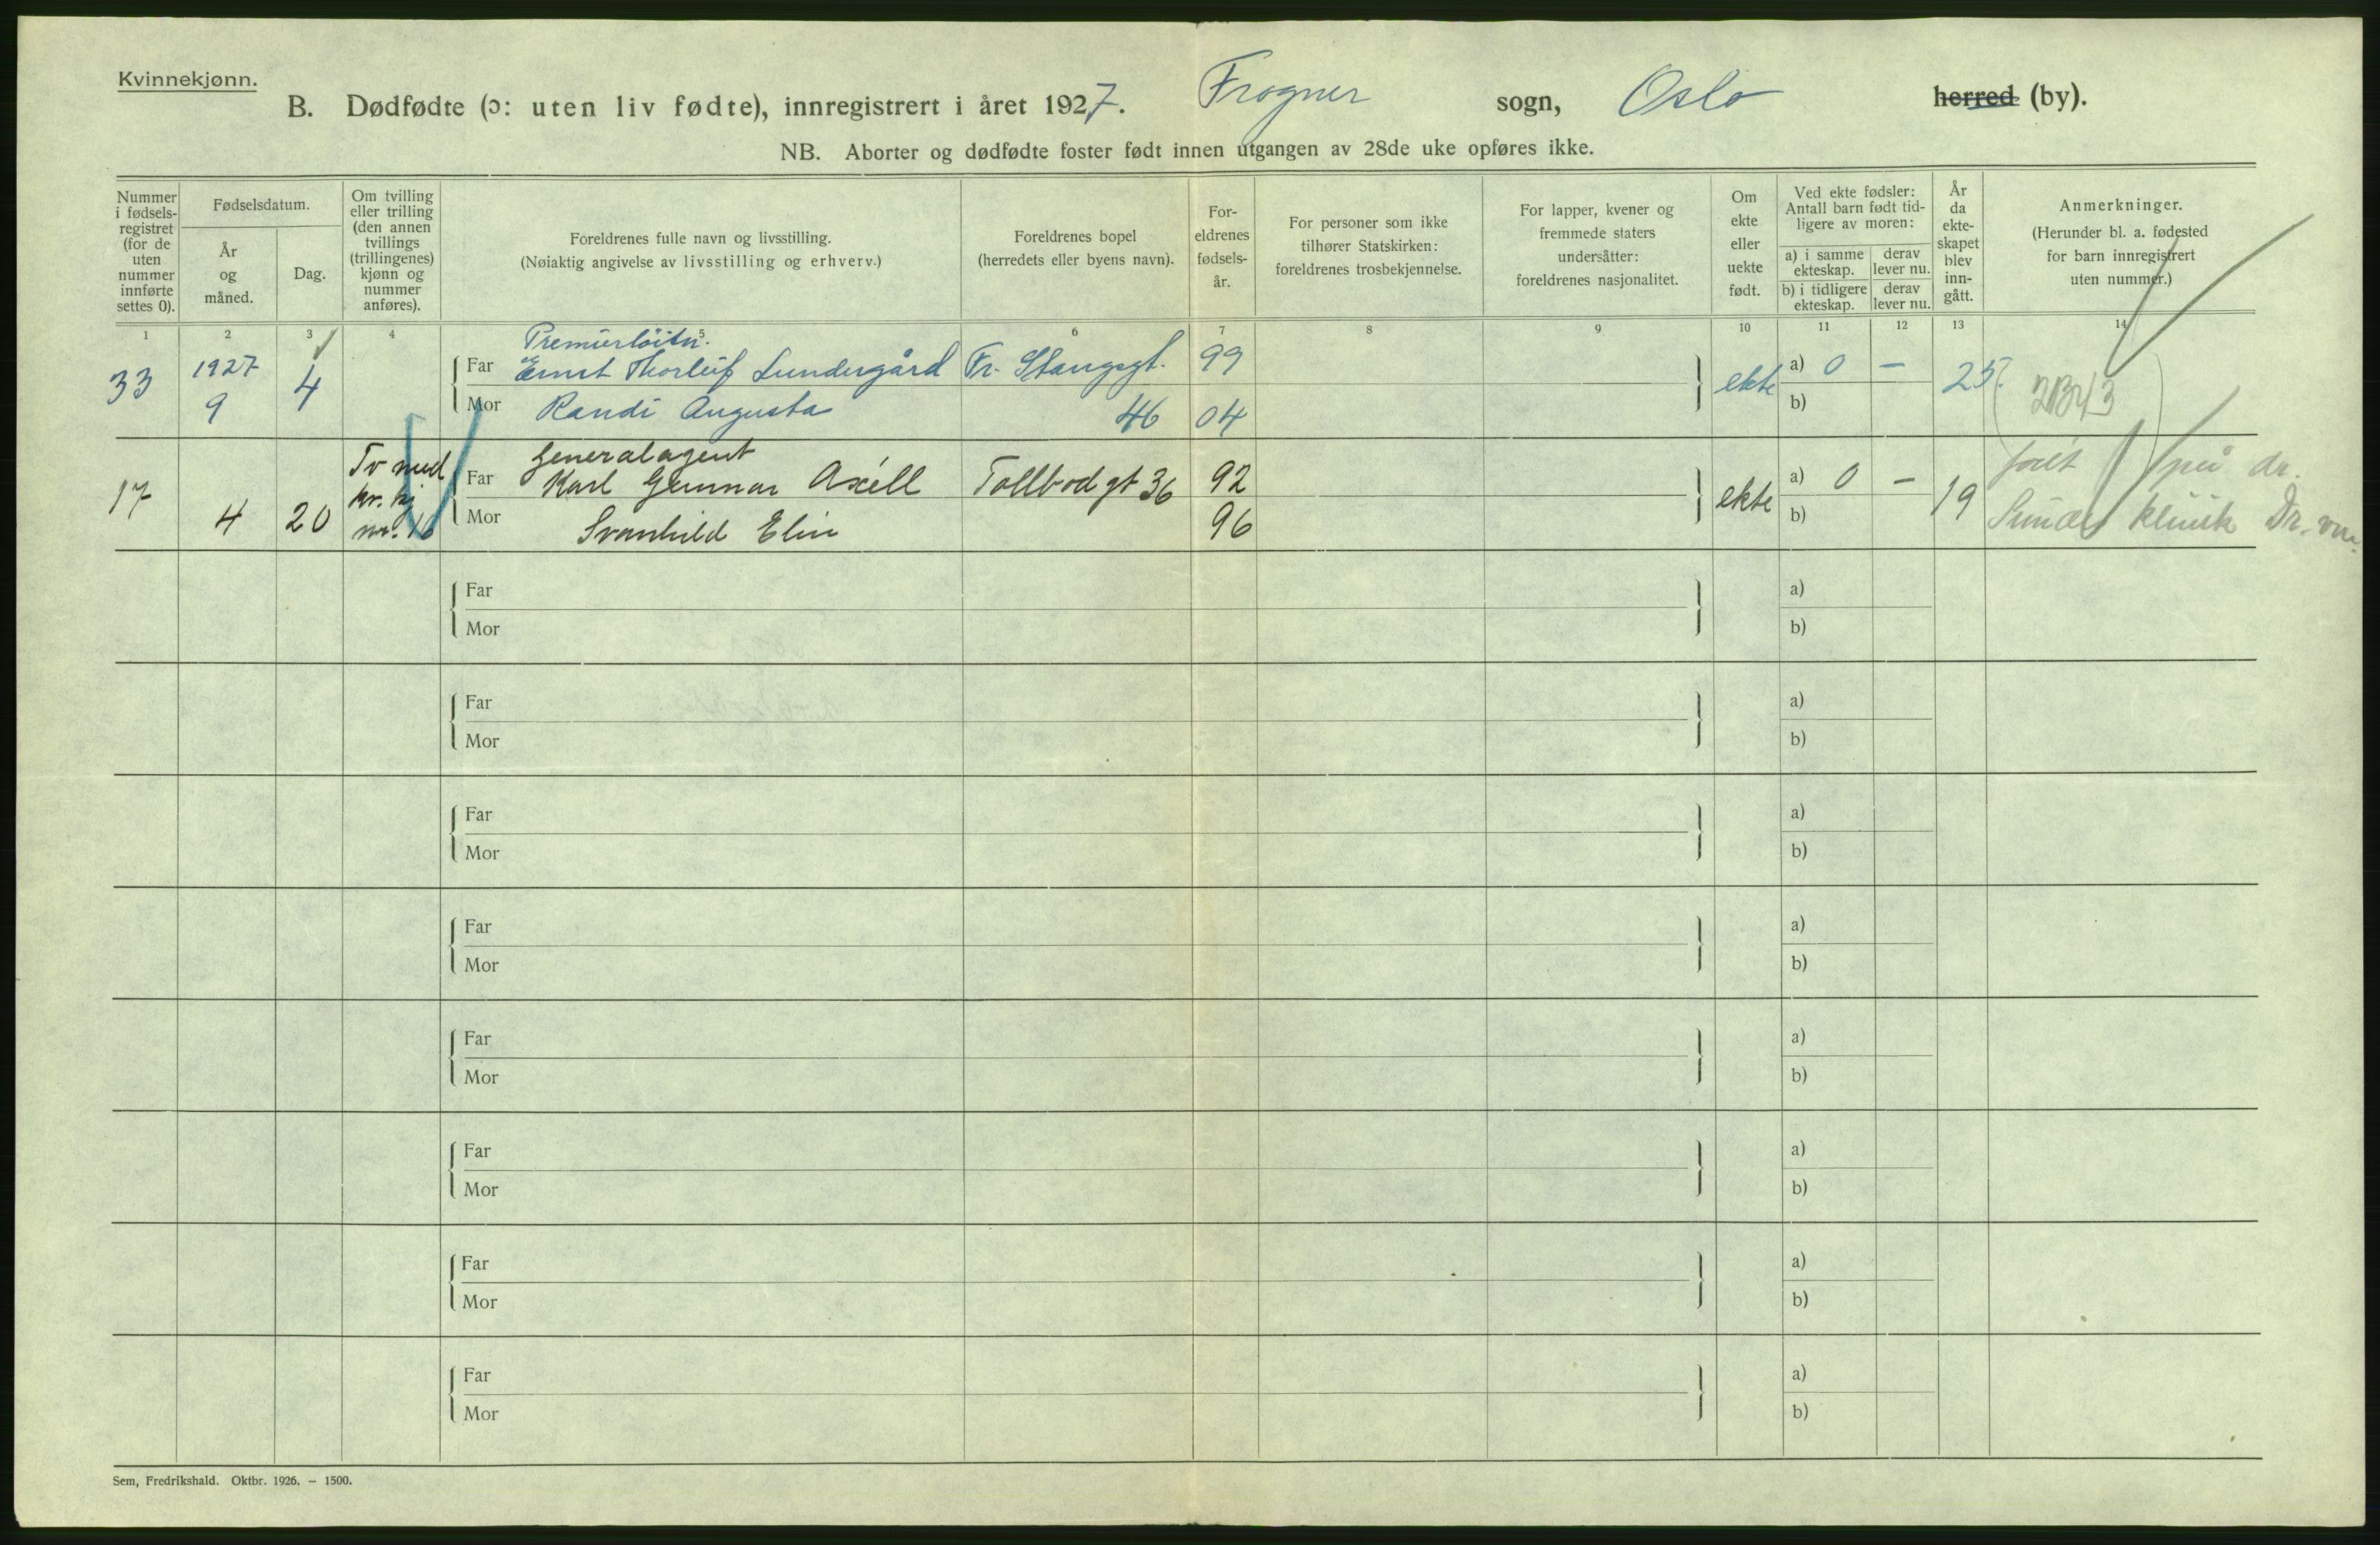 Kvinnekjønn.
B. Dødfødte (ɔ: uten liv fødte), innregistrert i året 1927. Frogner sogn, Oslo herred (by).
NB. Aborter og dødfødte foster født innen utgangen av 28de uke opføres ikke.
Nummer i fødsels-registret (for de uten nummer innførte settes 0).
Fødselsdatum.
År og måned.
Dag.
Om tvilling eller trilling (den annen tvillings (trillingenes) kjønn og nummer anføres).
Foreldrenes fulle navn og livsstilling.
(Nøiaktig angivelse av livsstilling og erhverv.)
Foreldrenes bopel
(herredets eller byens navn).
For-eldrenes fødsels-år.
For personer som ikke tilhører Statskirken: foreldrenes trosbekjennelse.
For lapper, kvener og fremmede staters undersåtter: foreldrenes nasjonalitet.
Om ekte eller uekte født.
Ved ekte fødsler: Antall barn født tid-ligere av moren:
a) i samme ekteskap.
derav lever nu.
b) i tidligere ekteskap.
derav lever nu.
År da ekte-skapet blev inn-gått.
Anmerkninger.
(Herunder bl. a. fødested for barn innregistrert uten nummer.)
1 2 3 4 5 6 7 8 9 10 11 12 13 14
Premierløitn.
33 1927 9 4 Far Ernst Thorleif Lundergård Fr. Stangsgt. 99 ekte a) 0 – 25
Mor Randi Augusta 46 04 b)
Generalagent
17 4 20 Tv med kv. kj nr. 16 Far Karl Gunnar Axéll Tollbodgt 36 92 ekte a) 0 – 19 født på dr.
Mor Svanhild Elin 96 b) klinik Dr. vn.
Far a)
Mor b)
Far a)
Mor b)
Far a)
Mor b)
Far a)
Mor b)
Far a)
Mor b)
Far a)
Mor b)
Far a)
Mor b)
Far a)
Mor b)
Sem, Fredrikshald. Oktbr. 1926. – 1500.